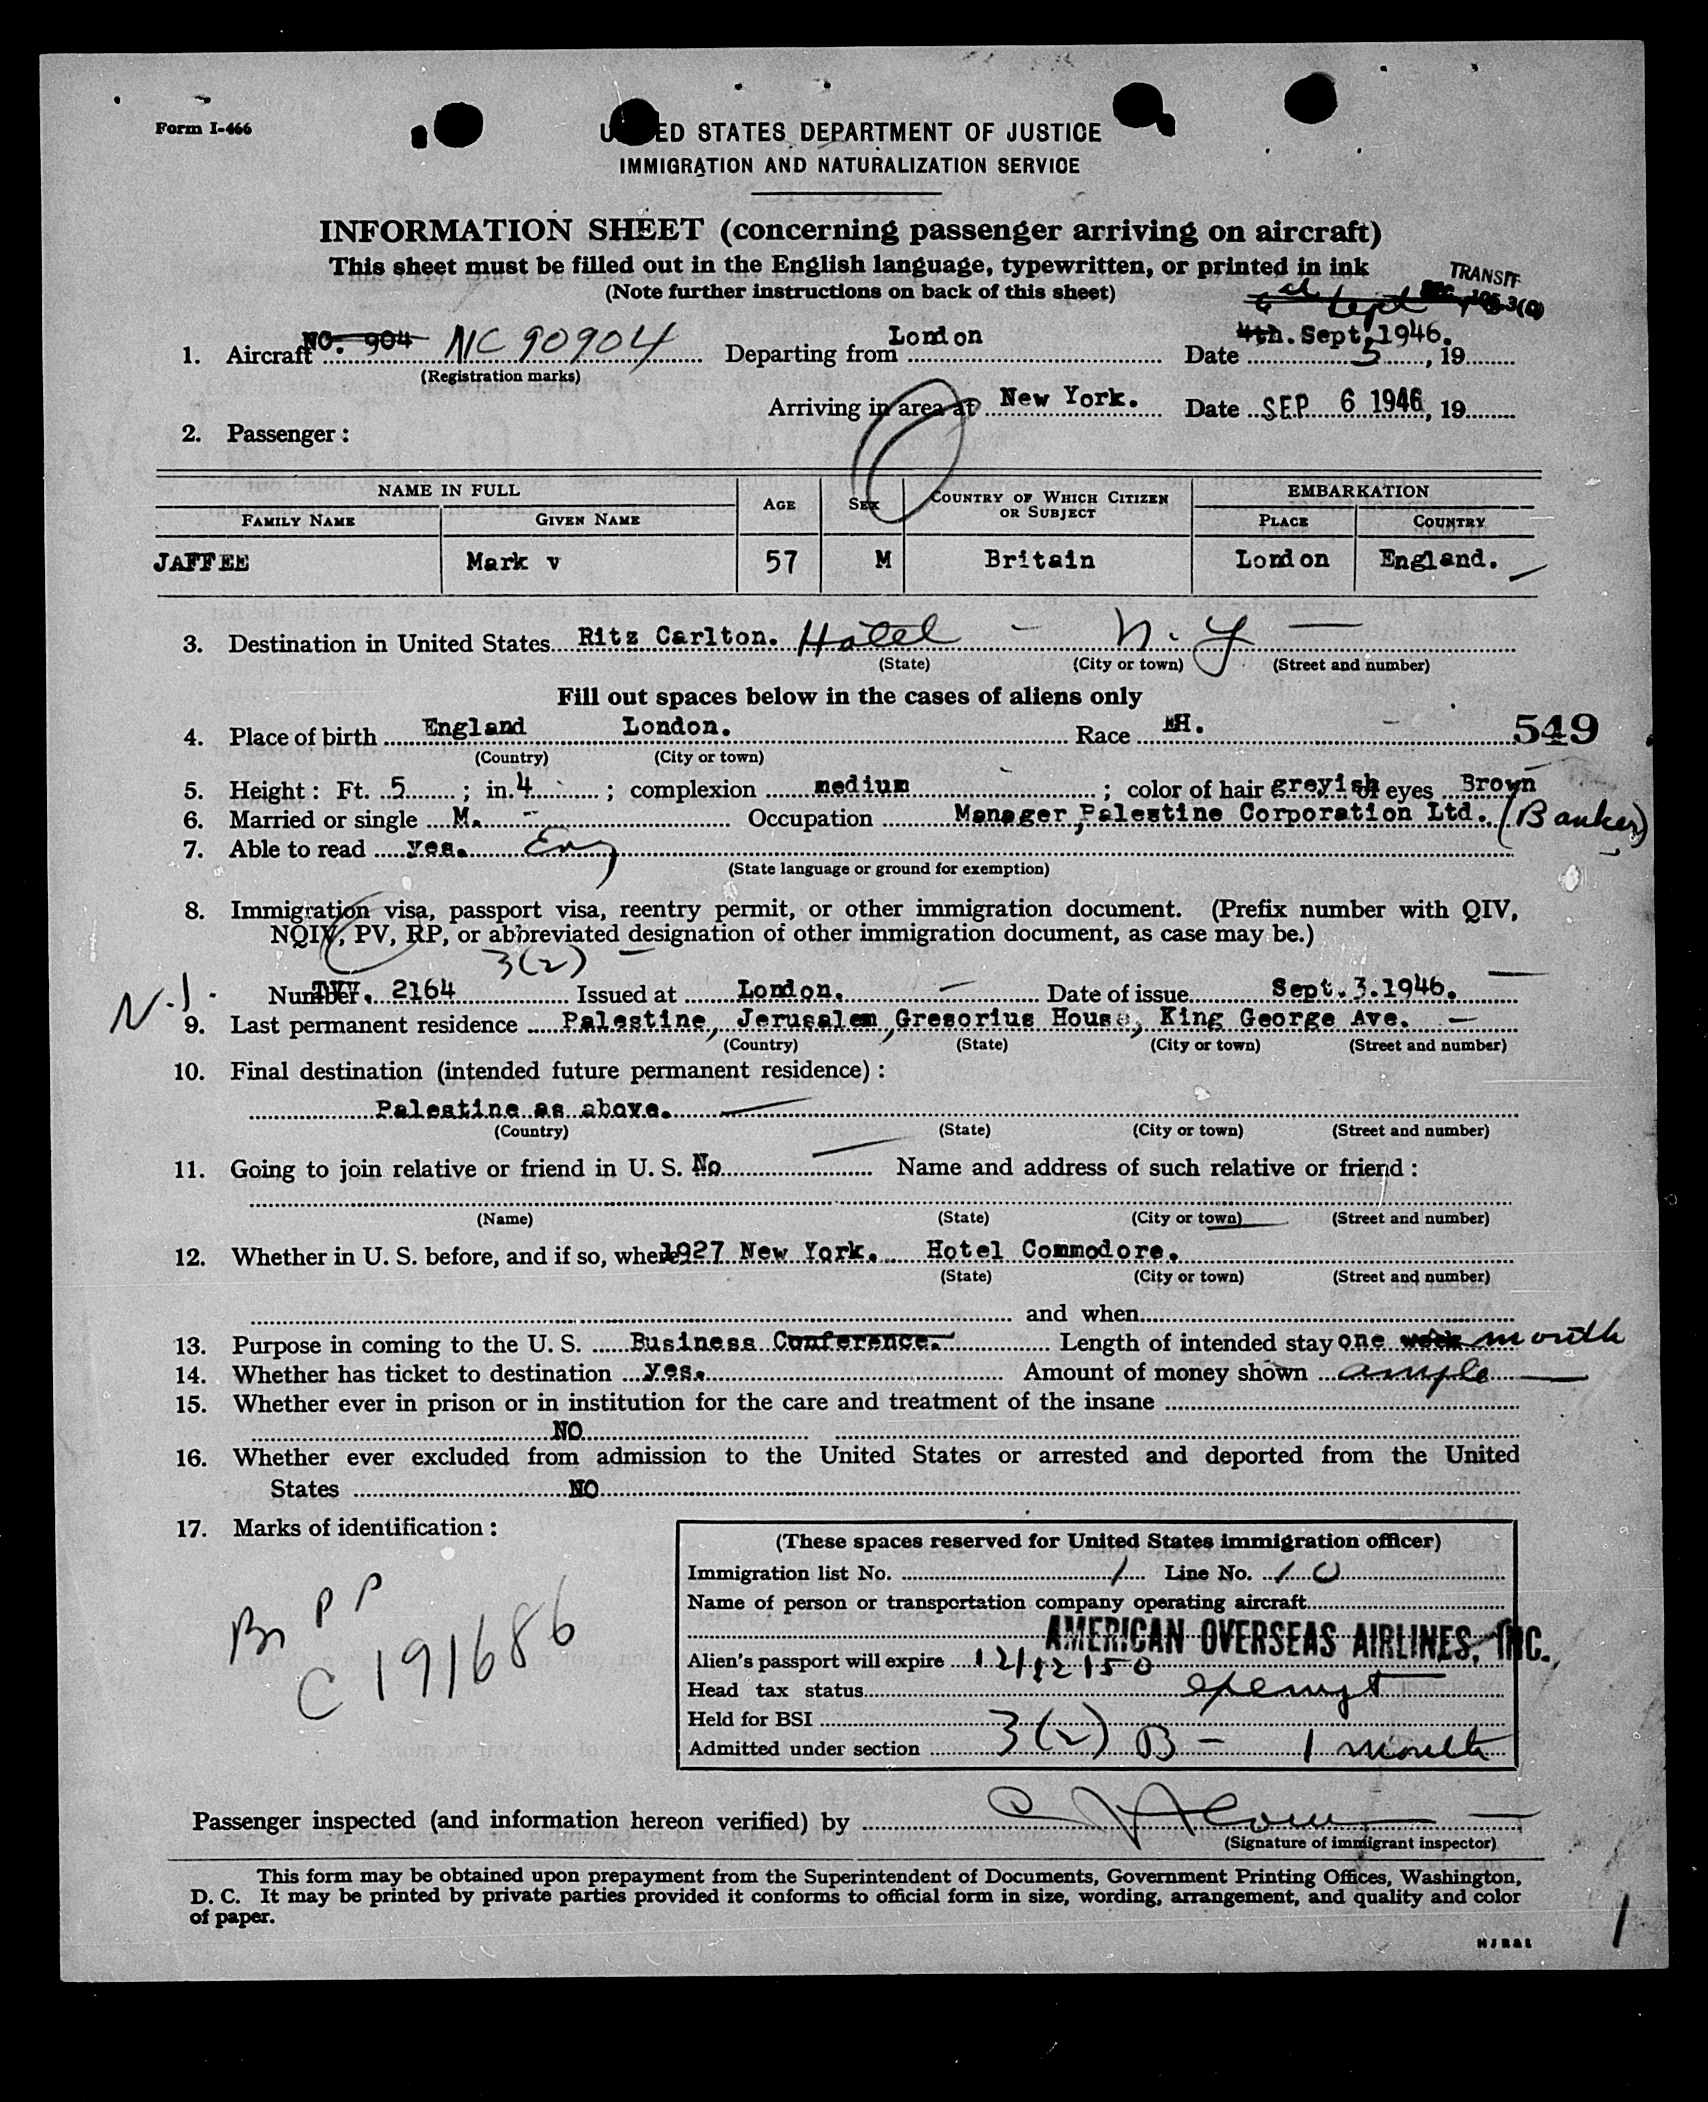 Form I-466
UNITED STATES DEPARTMENT OF JUSTICE
IMMIGRATION AND NATURALIZATION SERVICE
INFORMATION SHEET (concerning passenger arriving on aircraft)
This sheet must be filled out in the English language, typewritten, or printed in ink
(Note further instructions on back of this sheet)
TRANSIT
1. Aircraft NO. 904 NC 90904 Departing from London Date 4th. Sept, 1946. 5, 19
(Registration marks)
Arriving in area at New York. Date SEP 6 1946, 19
2. Passenger:
NAME IN FULL AGE SEX COUNTRY OF WHICH CITIZEN OR SUBJECT EMBARKATION
FAMILY NAME GIVEN NAME PLACE COUNTRY
JAFFEE Mark v 57 M Britain London England.
3. Destination in United States Ritz Carlton. Hotel - N.Y -
(State) (City or town) (Street and number)
Fill out spaces below in the cases of aliens only
4. Place of birth England London. Race H. 549
(Country) (City or town)
5. Height: Ft. 5; in. 4; complexion medium; color of hair greyish of eyes Brown
6. Married or single M. Occupation Manager, Palestine Corporation Ltd. (Banker)
7. Able to read yes. Eng
(State language or ground for exemption)
8. Immigration visa, passport visa, reentry permit, or other immigration document. (Prefix number with QIV,
NQIV, PV, RP, or abbreviated designation of other immigration document, as case may be.)
3(2) -
Number 2164 Issued at London. Date of issue Sept. 3. 1946.
N.I.
9. Last permanent residence Palestine, Jerusalem, Gresorius House, King George Ave. -
(Country) (State) (City or town) (Street and number)
10. Final destination (intended future permanent residence):
Palestine as above.
(Country) (State) (City or town) (Street and number)
11. Going to join relative or friend in U. S. No Name and address of such relative or friend:
(Name) (State) (City or town) (Street and number)
12. Whether in U. S. before, and if so, where 1927 New York. Hotel Commodore.
(State) (City or town) (Street and number)
and when
13. Purpose in coming to the U. S. Business Conference. Length of intended stay one week month
14. Whether has ticket to destination yes. Amount of money shown ample
15. Whether ever in prison or in institution for the care and treatment of the insane
NO
16. Whether ever excluded from admission to the United States or arrested and deported from the United
States NO
17. Marks of identification:
Br PP
C 191686
(These spaces reserved for United States immigration officer)
Immigration list No. 1 Line No. 10
Name of person or transportation company operating aircraft
AMERICAN OVERSEAS AIRLINES, INC.
Alien's passport will expire 12/12/50
Head tax status exempt
Held for BSI
Admitted under section 3(2) B - 1 month
Passenger inspected (and information hereon verified) by
(Signature of immigrant inspector)
This form may be obtained upon prepayment from the Superintendent of Documents, Government Printing Offices, Washington,
D. C. It may be printed by private parties provided it conforms to official form in size, wording, arrangement, and quality and color
of paper.
1